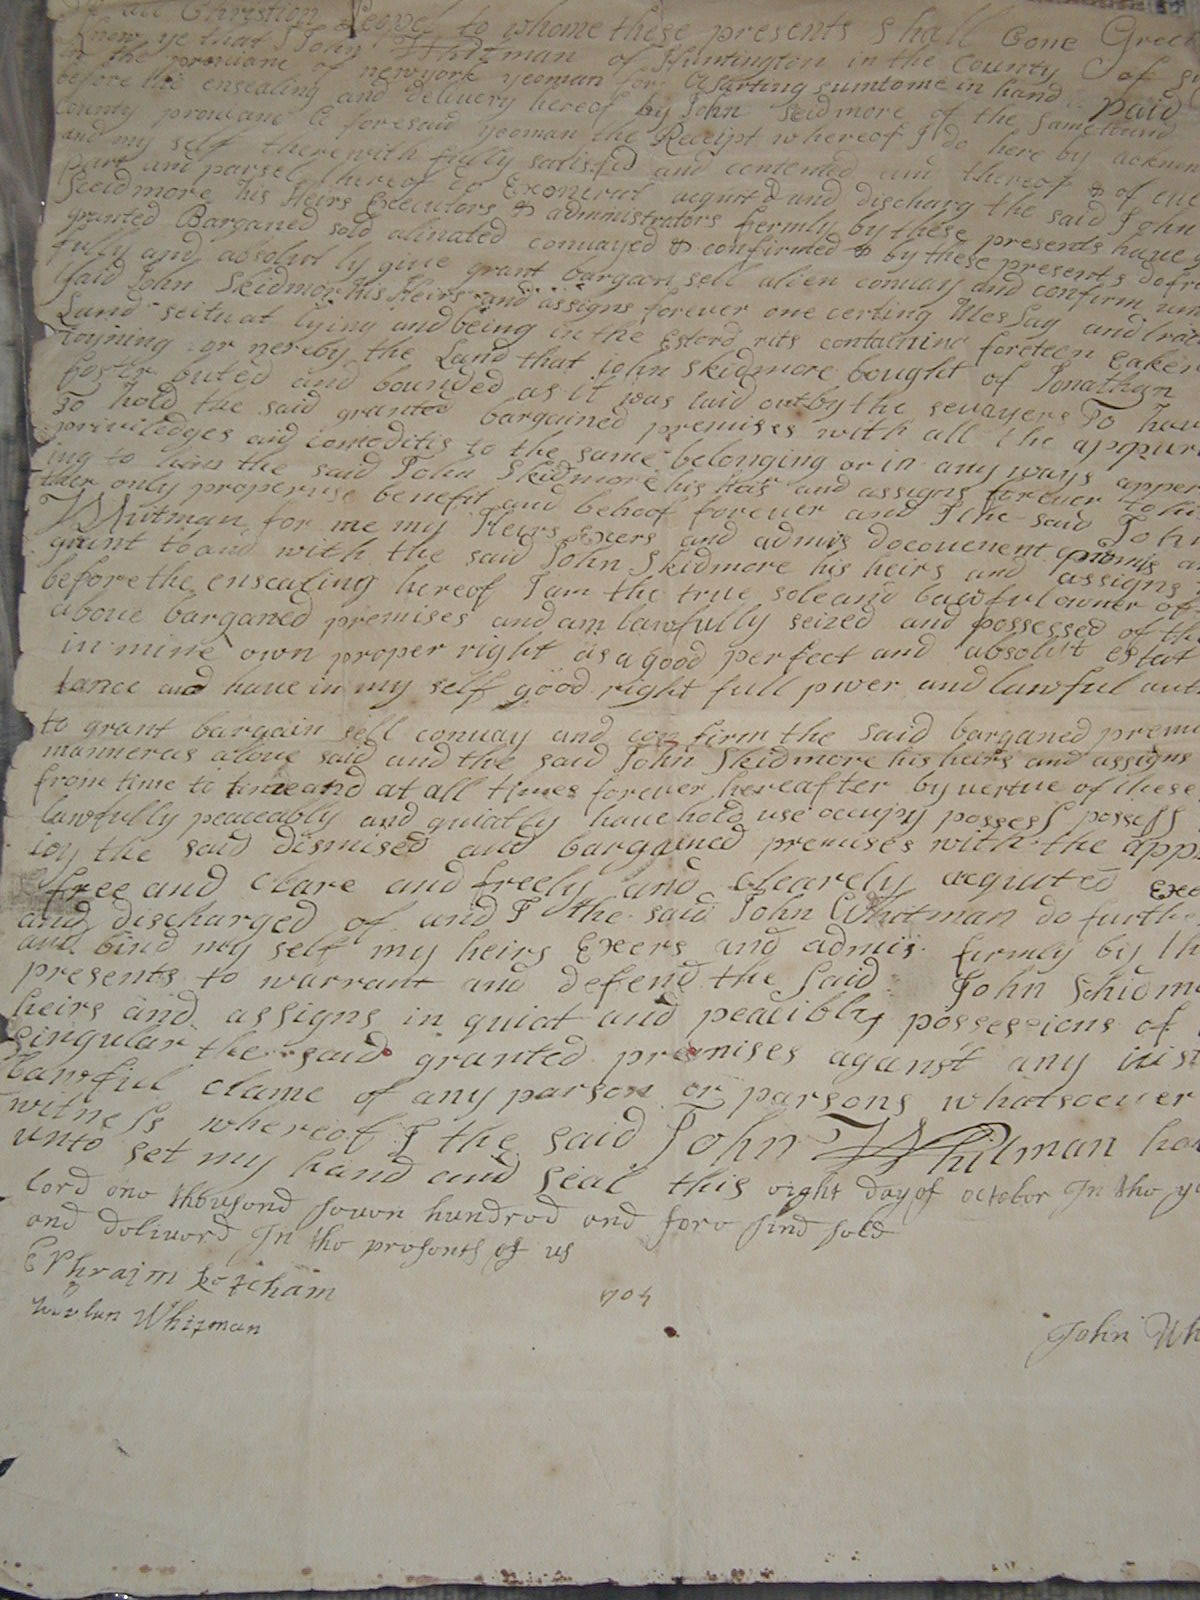 To all Christion People to whome these presents shall Come Greet
Know ye that I John Whitman of Huntington in the County of S
in the prouiane of newyork yeoman for a sarting sumtome in hand paid
before the ensealing and delivery hereof by John Scidmore of the same
County prouiane a foresaid yeoman the Receipt whereof I do here by acknow
and my self therewith fully satisfid and contented and thereof & of eve
part and parsel thereof do Exonerat acquitd and discharg the said John
Scidmore his Heirs Executors & administrators fermly by these presents haue g
granted Barganed sold alinated conuayed & confirmed & by these presents dofre
fully and absolutly giue grant bargain sell alien conuay and confirm un
said John Skidmor his Heirs and assigns forever one certing Mesuag and trac
Land seituat lying and being in the Esterd rits containing foreteen eaker
Joyning or nereby the Land that John Skidmore bought of Jonathan
foster buted and bounded as it was laid out by the seruayers To hau
To hold the said granted bargained premises with all the appur
priviledges and comoditis to the same belonging or in any ways apper
ing to him the said John Skidmore his Heirs and assigns forever to hi
ther only properuse benefit and behoof forever and I the said John
Whitman for me my Heirs Exers and admis docouenent promis an
grant to and with the said John Skidmore his heirs and assigns
before the ensealing hereof I am the true sole and lawful owner of
aboue barganed premises and am lawfully seized and possessed of th
in mine own proper right as a good perfect and absolut estat
tance and haue in my self good right full pwer and lawful aut
to grant bargain sell conuay and con firm the said barganed premi
manner as aboue said and the said John Skidmore his heirs and assigns
from time to time and at all times forever hereafter by vertue of these
lawfully peaceably and quiatly haue hold use occupy possess possess
ioy the said dismised and bargained premises with the app
free and clare and freely and clearely acquited exe
and discharged of and I the said John Whitman do furthe
and bind my self my heirs Exers and admis firmly by th
presents to warrant and defend the said John Skidm
heirs and assigns in quiat and peacibly possessions of
singular the said granted premises against any
lawful clame of any parson or parsons whatsoeuer
witness whereof I the said John Whitman ha
unto set my hand and seal this eight day of october In the ye
lord one thousand seuen hundred and foro sind seld
and deliuerd In the presents of us
Ephraim Ketcham
Whitman
704
John Wh